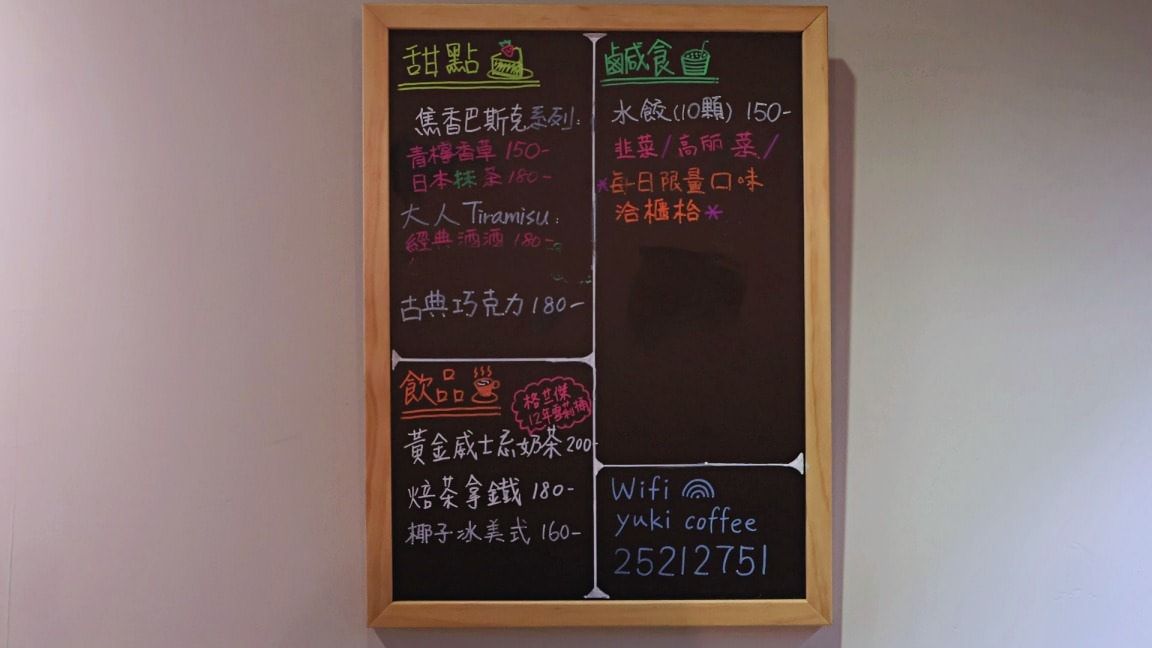 甜點
焦香巴斯克系列:
青檸香草 150-
日本抹茶 180-
大人 Tiramisu:
經典酒酒 180-
古典巧克力 180-
飲品
格兰傑
12年雪莉桶
黃金威士忌奶茶 200-
焙茶拿鐵 180-
椰子冰美式 160-
鹹食
水餃(10顆) 150-
韭菜/高丽菜/
*每日限量口味
洽櫃枱*
Wifi
yuki coffee
25212751